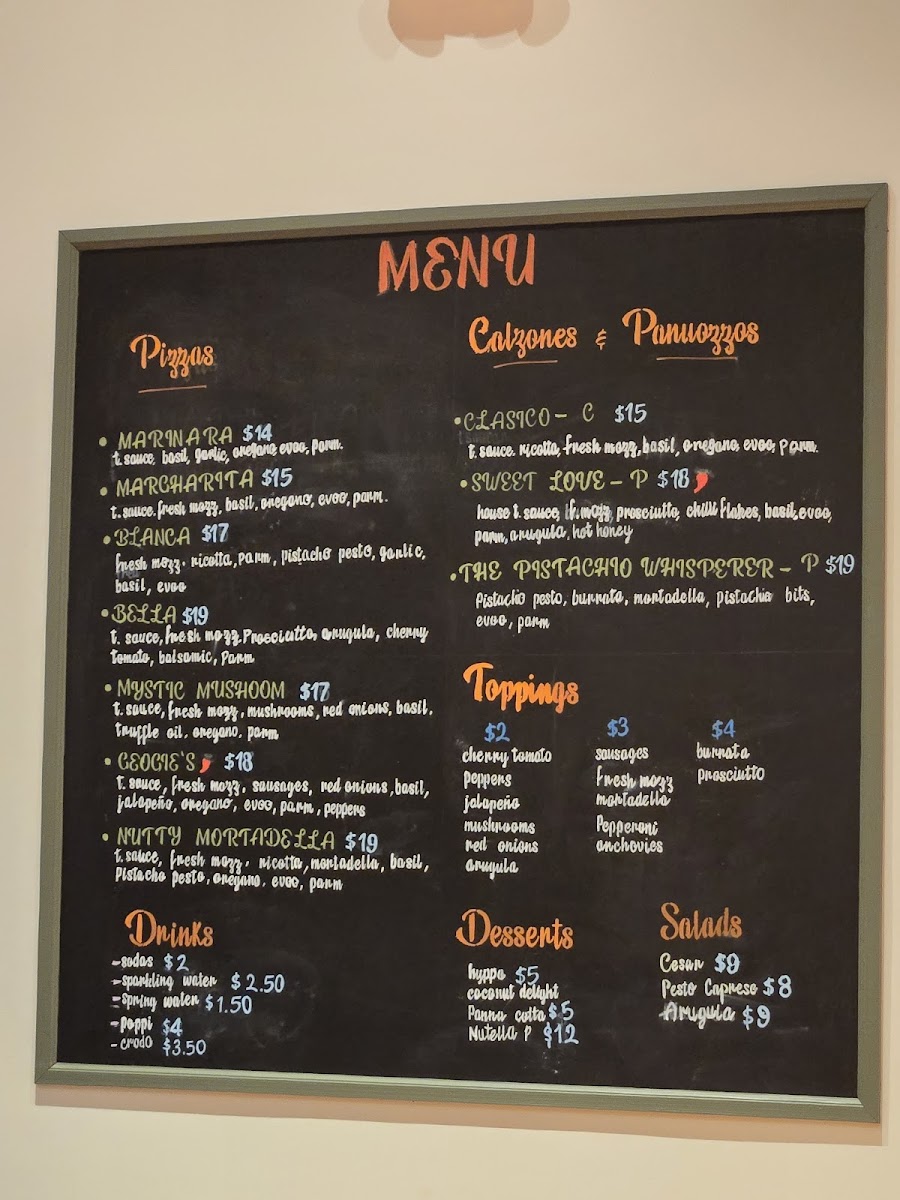 MENU
Pizzas
• MARINARA $14
t. sauce, basil, garlic, oregano, evoo, parm.
• MARGHARITA $15
t. sauce, fresh mozz, basil, oregano, evoo, parm.
• BLANCA $17
fresh mozz. ricotta, parm, pistacho pesto, garlic,
basil, evoo
• BELLA $19
t. sauce, fresh mozz, Prosciutto, arugula, cherry
tomato, balsamic, Parm
• MYSTIC MUSHOOM $17
t. sauce, fresh mozz, mushrooms, red onions, basil,
truffle oil, oregano, parm
• GEOGIE'S $18
t. sauce, fresh mozz, sausages, red onions, basil,
jalapeño, oregano, evoo, parm, peppers
• NUTTY MORTADELLA $19
t. sauce, fresh mozz, ricotta, mortadella, basil,
Pistacho pesto, oregano, evoo, parm
Drinks
-sodas $2
-sparkling water $2.50
-spring water $1.50
-poppi $4
-crodo $3.50
Calzones & Panuozzos
• CLASICO - C $15
t. sauce, ricotta, fresh mozz, basil, oregano, evoo, parm.
• SWEET LOVE - P $18
house t. sauce, f. mozz, prosciutto, chilli flakes, basil, evoo,
parm, arugula, hot honey
• THE PISTACHIO WHISPERER - P $19
Pistachio pesto, burrata, mortadella, pistachio bits,
evoo, parm
Toppings
$2
cherry tomato
peppers
jalapeño
mushrooms
red onions
arugula
$3
sausages
fresh mozz
mortadella
Pepperoni
anchovies
$4
burrata
prosciutto
Desserts
hyppo $5
coconut delight
Panna cotta $5
Nutella P $12
Salads
Cesar $9
Pesto Caprese $8
-Arugula $9